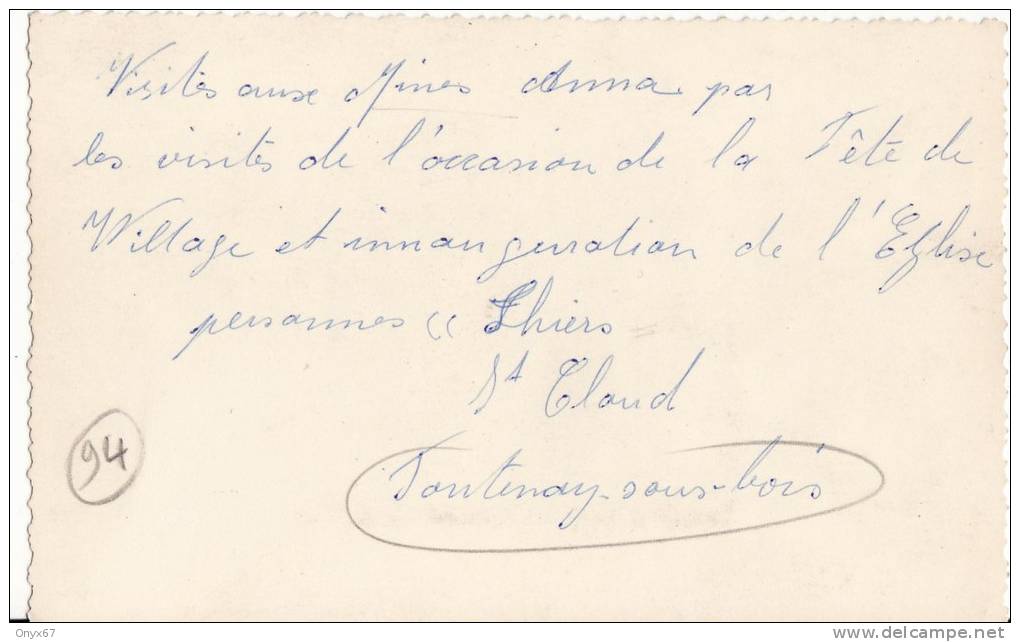 Visités aux Mines Anna par
les visités de l'occasion de la Fête de
Village et innanguration de l'Eglise
personnes " Thiers
St Cloud
94
Fontenay-sous-bois
Onyx67
delcampe.net